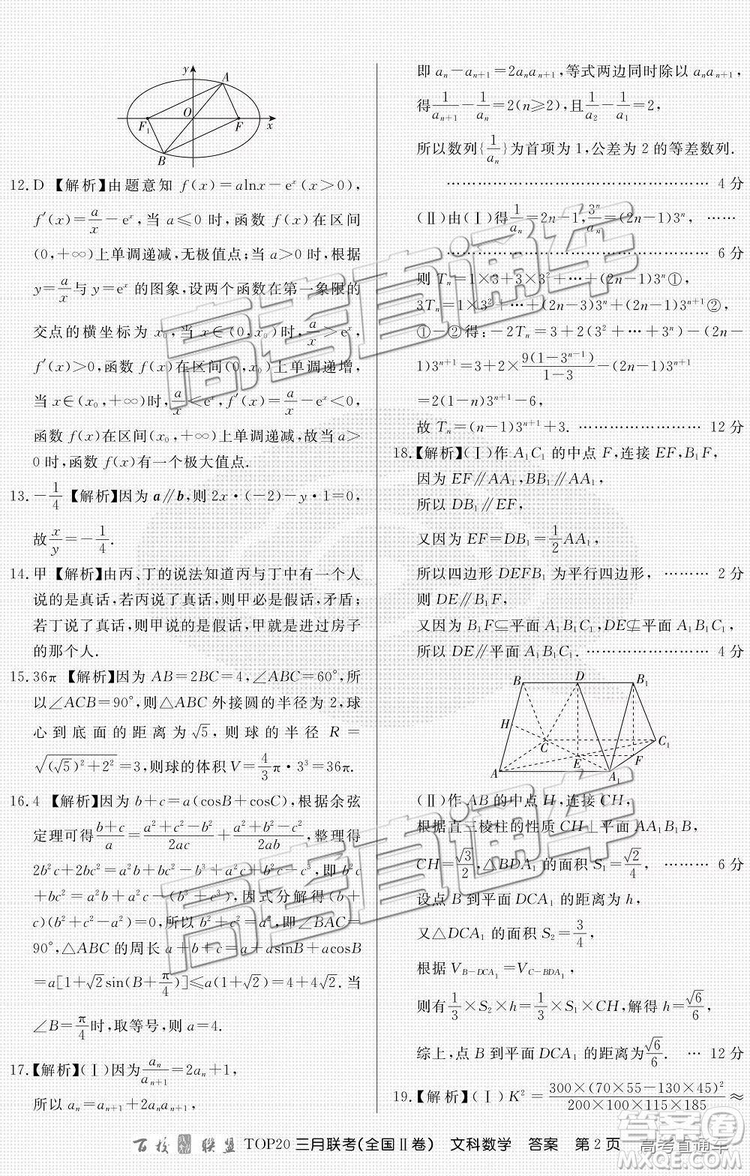 y
A
F₁
O
F
x
B
12.D 【解析】由题意知 f(x)=alnx-eˣ(x>0),
f′(x)=a/x-eˣ,当 a⩽0 时,函数 f(x)在区间
(0,+∞)上单调递减,无极值点;当 a>0 时,根据
y=a/x与 y=eˣ 的图象,设两个函数在第一象限的
交点的横坐标为 x₀,当 x∈(0,x₀)时,a/x>eˣ,
f′(x)>0,函数 f(x)在区间(0,x₀)上单调递增,
当 x∈(x₀,+∞)时,a/x<eˣ,f′(x)<0,
函数 f(x)在区间(x₀,+∞)上单调递减.故当 a>
0时,函数 f(x)有一个极大值点.
13.-1/4 【解析】因为 a∥b,则 2x·(-2)-y·1=0,
故x/y=-1/4.
14.甲 【解析】由丙、丁的说法知道丙与丁中有一个人
说的是真话,若丙说了真话,则甲必是假话,矛盾;
若丁说了真话,则甲说的是假话,甲就是进过房子
的那个人.
15.36π 【解析】因为 AB=2BC=4,∠ABC=60°,所
以∠ACB=90°,则△ABC 外接圆的半径为 2,球
心到底面的距离为√5,则球的半径 R=
√((√5)²+2²)=3,则球的体积 V=4/3π·3³=36π.
16.4 【解析】因为 b+c=a(cosB+cosC),根据余弦
定理可得(b+c)/a=(a²+c²-b²)/2ac+(a²+b²-c²)/2ab,整理得
2b²c+2bc²=a²b+bc²-b³+a²c+b²c-c³,即 b²c
+bc²=a²b-b³+a²c-c³,因式分解得(b+c)
(b²+c²-a²)=0,所以 b²+c²=a²,即∠BAC=
90°,△ABC 的周长 a+b+c=a+asinB+acosB
=a[1+√2sin(B+π/4)]⩽a(1+√2)=4+4√2.当
∠B=π/4时,取等号,则 a=4.
17.【解析】(Ⅰ)因为aₙ/aₙ₊₁=2aₙ+1,
所以 aₙ=2aₙaₙ₊₁+aₙ₊₁,
即 aₙ-aₙ₊₁=2aₙaₙ₊₁,等式两边同时除以 aₙaₙ₊₁,
得1/aₙ₊₁-1/aₙ=2(n⩾2),且1/a₂-1/a₁=2,
所以数列{1/aₙ}为首项为 1,公差为 2 的等差数列.
…………………………………… 4 分
(Ⅱ)由(Ⅰ)得1/aₙ=2n-1,3ⁿ/aₙ=(2n-1)3ⁿ, ……
…………………………………… 6 分
则 Tₙ=1×3+3×3²+…+(2n-1)3ⁿ①,
3Tₙ=1×3²+…+(2n-3)3ⁿ+(2n-1)3ⁿ⁺¹②,
①-②得:-2Tₙ=3+2(3²+…+3ⁿ)-(2n-
1)3ⁿ⁺¹=3+2×9(1-3ⁿ⁻¹)/(1-3)-(2n-1)3ⁿ⁺¹
=2(1-n)3ⁿ⁺¹-6,
故 Tₙ=(n-1)3ⁿ⁺¹+3. ……………… 12 分
18.【解析】(Ⅰ)作 A₁C₁ 的中点 F,连接 EF,B₁F,
因为 EF∥AA₁,BB₁∥AA₁,
所以 DB₁∥EF,
又因为 EF=DB₁=1/2AA₁,
所以四边形 DEFB₁ 为平行四边形, ……… 2 分
则 DE∥B₁F,
又因为 B₁F⊆平面 A₁B₁C₁,DE⊈平面 A₁B₁C₁,
所以 DE∥平面 A₁B₁C₁. ……………… 4 分
B
D
B₁
H
C
C₁
E
F
A
A₁
(Ⅱ)作 AB 的中点 H,连接 CH,
根据直三棱柱的性质 CH⊥平面 AA₁B₁B,
CH=√3/2,△BDA₁ 的面积 S₁=√2/4, ……… 6 分
设点 B 到平面 DCA₁ 的距离为 h,
又△DCA₁ 的面积 S₂=3/4,
根据 V_{B-DCA₁}=V_{C-BDA₁},
则有1/3×S₂×h=1/3×S₁×CH,解得 h=√6/6,
综上,点 B 到平面 DCA₁ 的距离为√6/6. … 12 分
19.【解析】(Ⅰ)K²=300×(70×55-130×45)²/(200×100×115×185)≈
百校联盟 TOP20 三月联考(全国Ⅱ卷) 文科数学 答案 第 2 页
高考直通车
高考直通车
高考直通车
答案圈